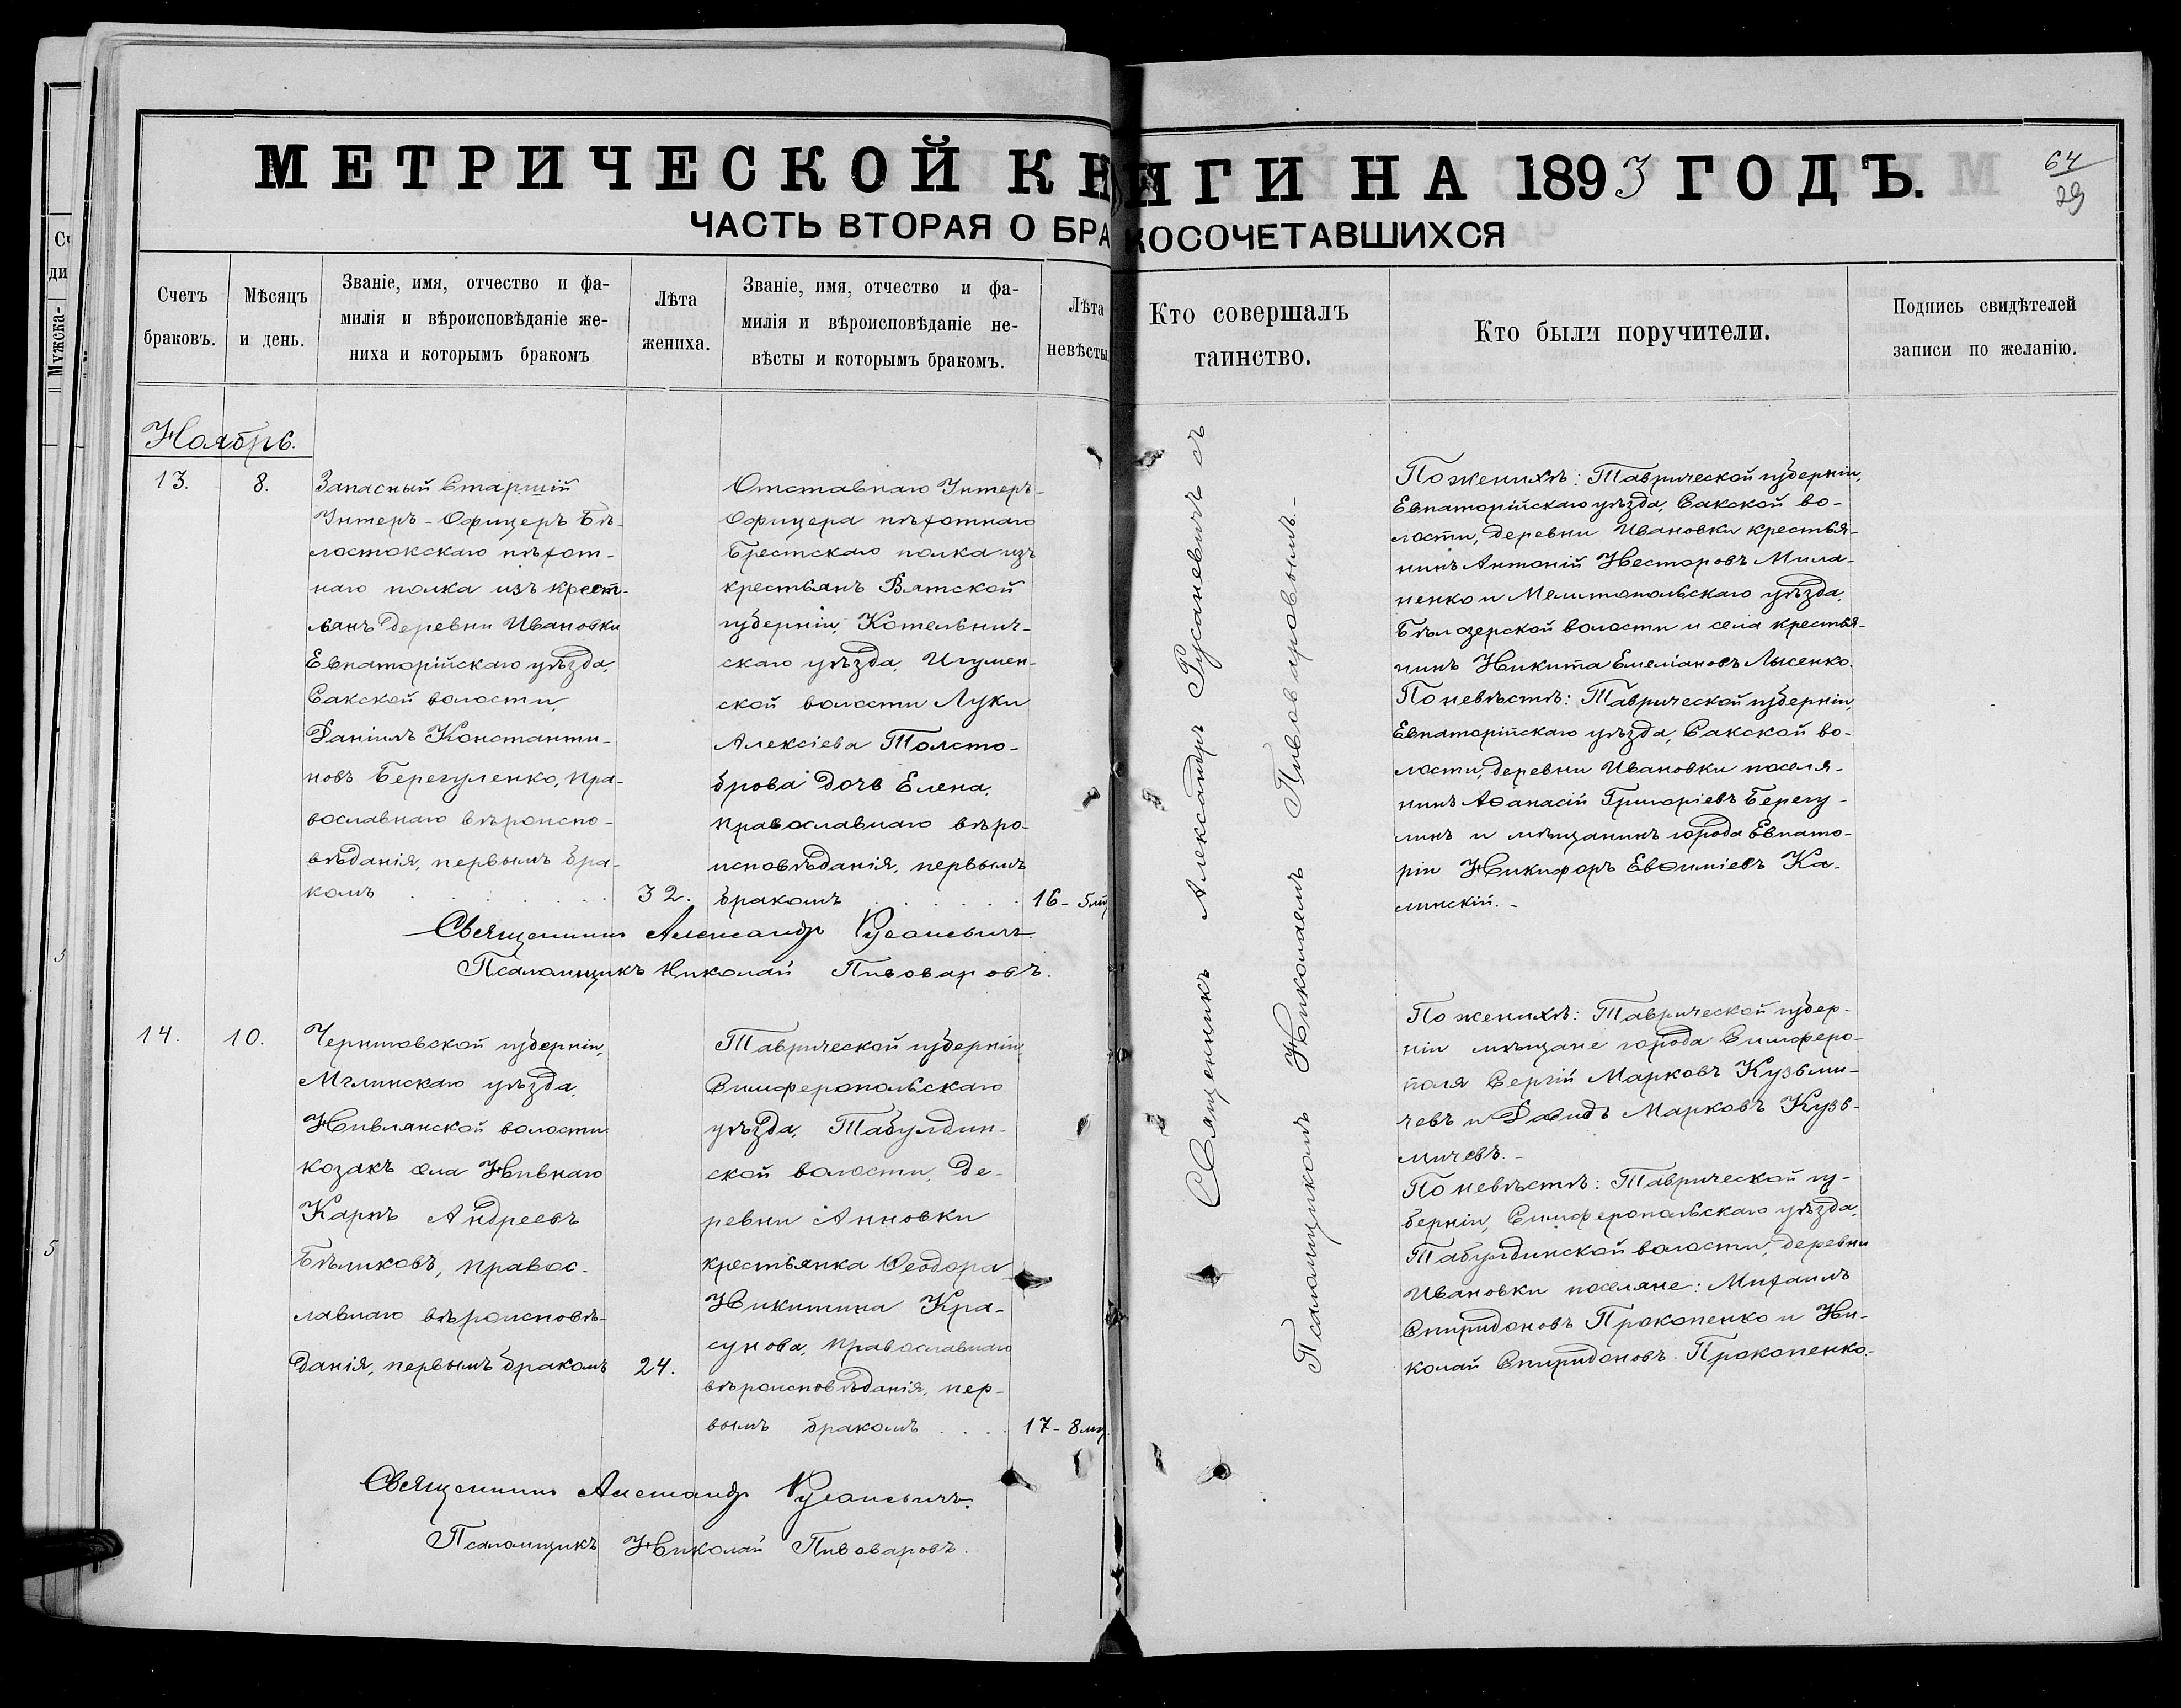 МЕТРИЧЕСКОЙ КНИГИ НА 1893 ГОДЪ.
64
29
ЧАСТЬ ВТОРАЯ О БРАКОСОЧЕТАВШИХСЯ
Счетъ браковъ.
Мѣсяцъ и день.
Званіе, имя, отчество и фа-
милія и вѣроисповѣданіе же-
ниха и которымъ бракомъ
Лѣта
жениха.
Званіе, имя, отчество и фа-
милія и вѣроисповѣданіе не-
вѣсты и которымъ бракомъ.
Лѣта
невѣсты.
Кто совершалъ
таинство.
Кто были поручители.
Подпись свидѣтелей
записи по желанію.
Ноябрь.
13.
8.
Запасный Старшій
Унтеръ-Офицеръ Бѣ-
лостокскаго пѣхот-
наго полка изъ крест-
ьянъ деревни Ивановки
Евпаторійскаго уѣзда,
Сакской волости,
Даніилъ Константи-
новъ Берегуленко, пра-
вославнаго вѣроиспо-
вѣданія, первымъ бра-
комъ
32.
Отставнаго Унтеръ-
Офицера пѣхотнаго
Брестскаго полка изъ
крестьянъ Вятской
губерніи, Котельнич-
скаго уѣзда, Игумен-
ской волости Луки
Алексіева Толсто-
брова дочь Елена,
православнаго вѣро-
исповѣданія, первымъ
бракомъ
16-5мц
Священникъ Александръ Русаневичъ.
Псаломщикъ Николай Пивоваровъ.
Священникъ Александръ Русаневичъ съ
Псаломщикомъ Николаемъ Пивоваровымъ.-
По женихѣ: Таврической губерніи,
Евпаторійскаго уѣзда, Сакской во-
лости, деревни Ивановки крестья-
нинъ Антоній Несторовъ Мила-
ненко и Мелитопольскаго уѣзда,
Бѣлозерской волости и села крестья-
нинъ Никита Емеліановъ Лысенко.
По невѣстѣ: Таврической губерніи,
Евпаторійскаго уѣзда, Сакской во-
лости, деревни Ивановки поселя-
нинъ Аѳанасій Григоріевъ Берегу-
линъ и мѣщанинъ города Евпато-
ріи Никифоръ Евѳиміевъ Ка-
линскій.-
14.
10.
Черниговской губерніи,
Мглинскаго уѣзда,
Нивлянской волости
козакъ села Нивнаго
Карпъ Андреевъ
Бѣликовъ, правос-
лавнаго вѣроисповѣ-
данія, первымъ бракомъ
24.
Таврической губерніи,
Симферопольскаго
уѣзда, Табулдин-
ской волости, де-
ревни Анновки
крестьянка Ѳеодора
Никитина Кра-
сунова, православнаго
вѣроисповѣданія, пер-
вымъ бракомъ
17-8мц.
Священникъ Александръ Русаневичъ.
Псаломщикъ Николай Пивоваровъ.
По женихѣ: Таврической губер-
ніи мѣщане города Симферо-
поля Сергій Марковъ Кузьми-
чевъ и Давидъ Марковъ Кузь-
мичевъ.-
По невѣстѣ: Таврической гу-
берніи, Симферопольскаго уѣзда,
Табулдинской волости, деревни
Ивановки поселяне: Михаилъ
Спиридоновъ Прокопенко и Ни-
колай Спиридоновъ Прокопенко.
Мужска-
5